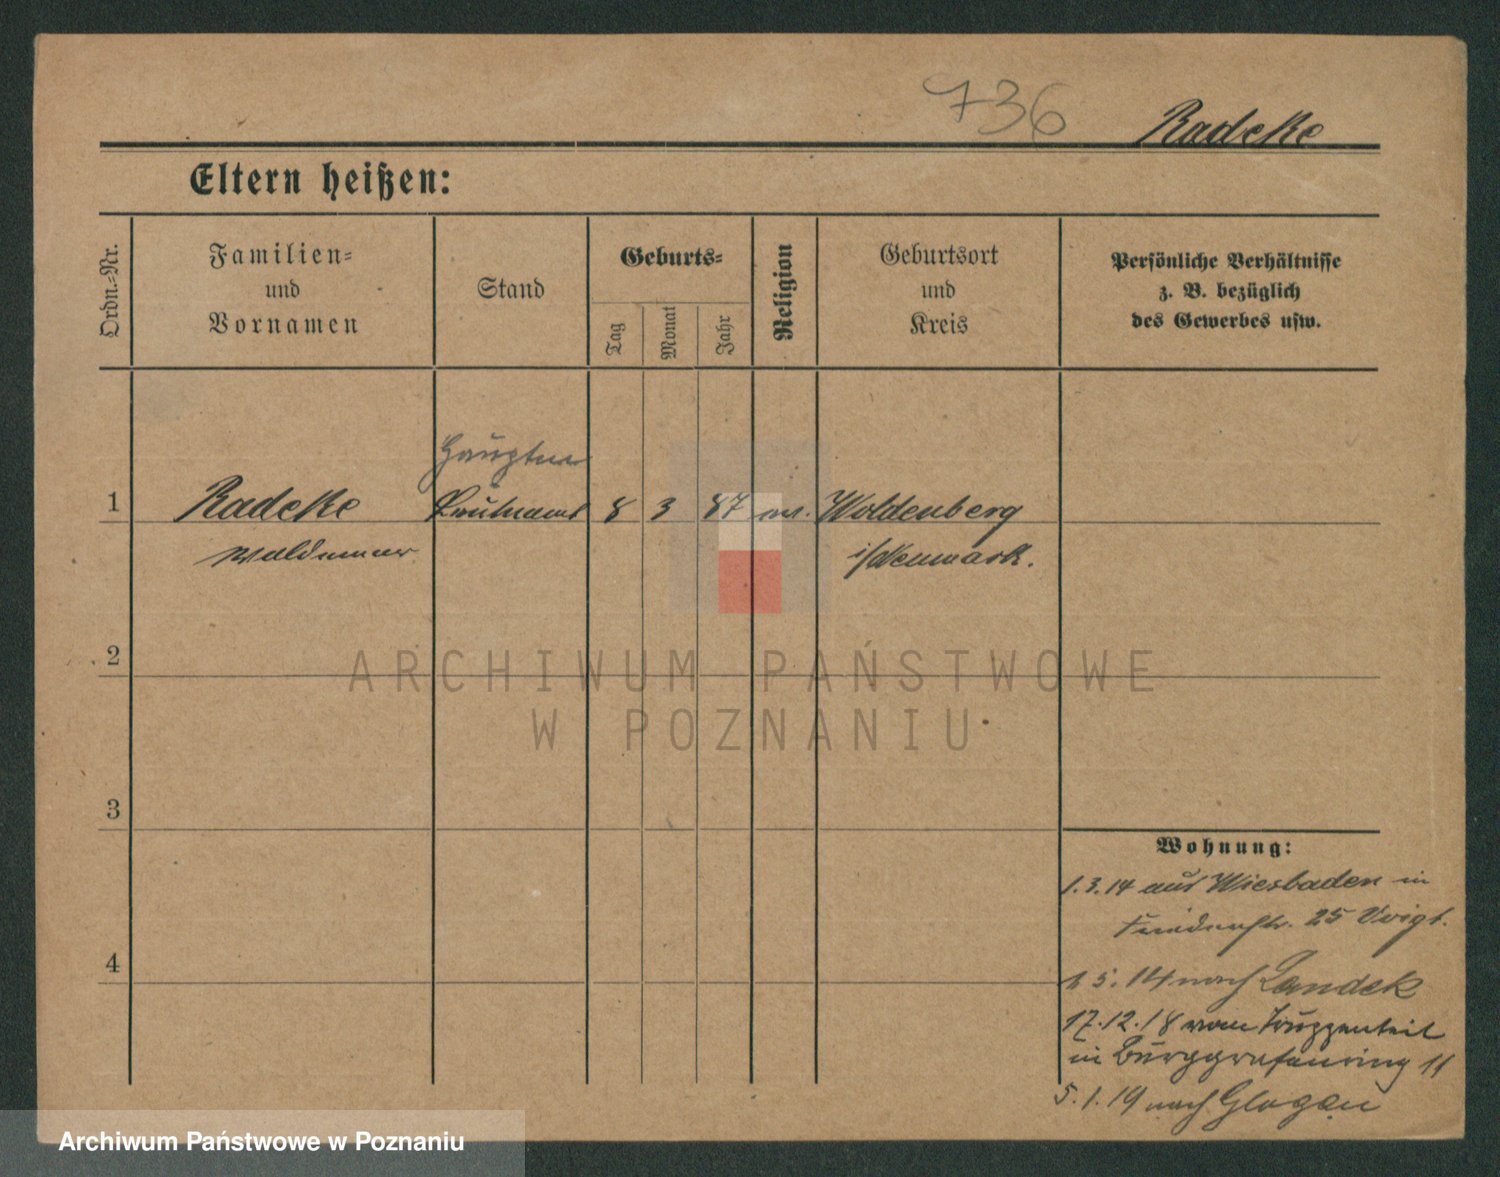 736
Radeke
Eltern heißen:
Ordn.-Nr.
Familien-
und
Vornamen
Stand
Geburts-
Tag
Monat
Jahr
Religion
Geburtsort
und
Kreis
Persönliche Verhältnisse
z. B. bezüglich
des Gewerbes usw.
Hauptm
1 Radeke Leutnant 8 3 87 ev. Woldenberg
Waldemar i/Neumark.
2
3
4
Wohnung:
1.3.14 aus Wiesbaden in
25 Voigt.
5. 14 nach Landek
17.12.18 vom Truppenteil
in Burggrafenring 11
5.1.19 nach Glogau
ARCHIWUM PAŃSTWOWE
W POZNANIU
Archiwum Państwowe w Poznaniu